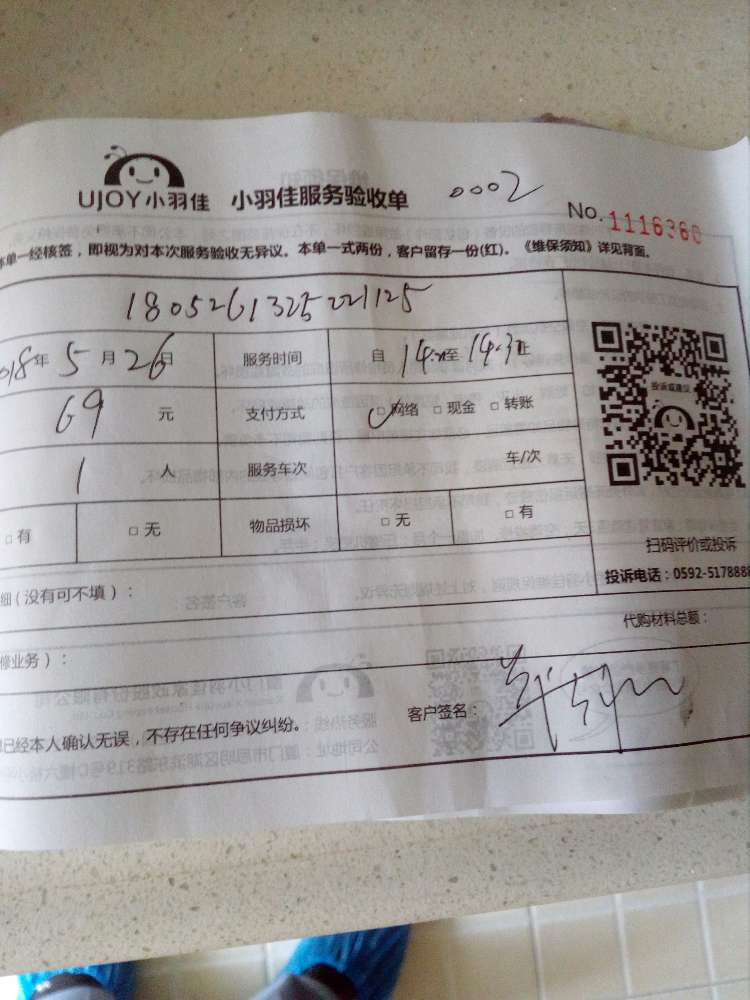 UJOY小羽佳 小羽佳服务验收单 0002
No. 1116360
本单一经核签，即视为对本次服务验收无异议。本单一式两份，客户留存一份(红)。《维保须知》详见背面。
1805261325221125
2018年5月26日 服务时间 自14:至14:3止
69元 支付方式 ✓□网络 □现金 □转账
1人 服务车次 车/次
□有 □无 物品损坏 □无 □有
投诉或建议
扫码评价或投诉
投诉电话：0592-5178888
细(没有可不填)：
代购材料总额：
修业务)：
已经本人确认无误，不存在任何争议纠纷。
客户签名：